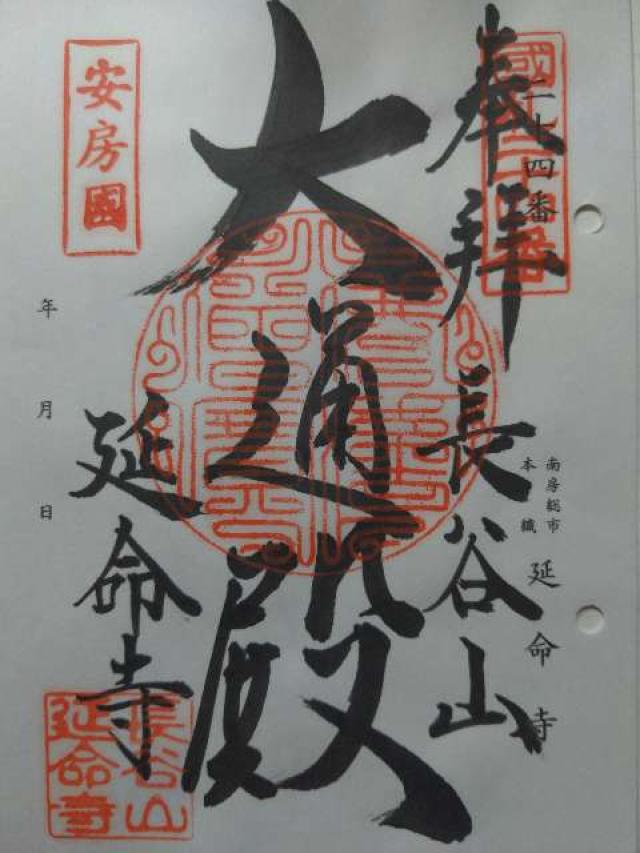 二十四番
南房総市
本織
延命寺
奉拝
長谷山
大通殿
延命寺
安房國
年 月 日
長谷山
延命寺